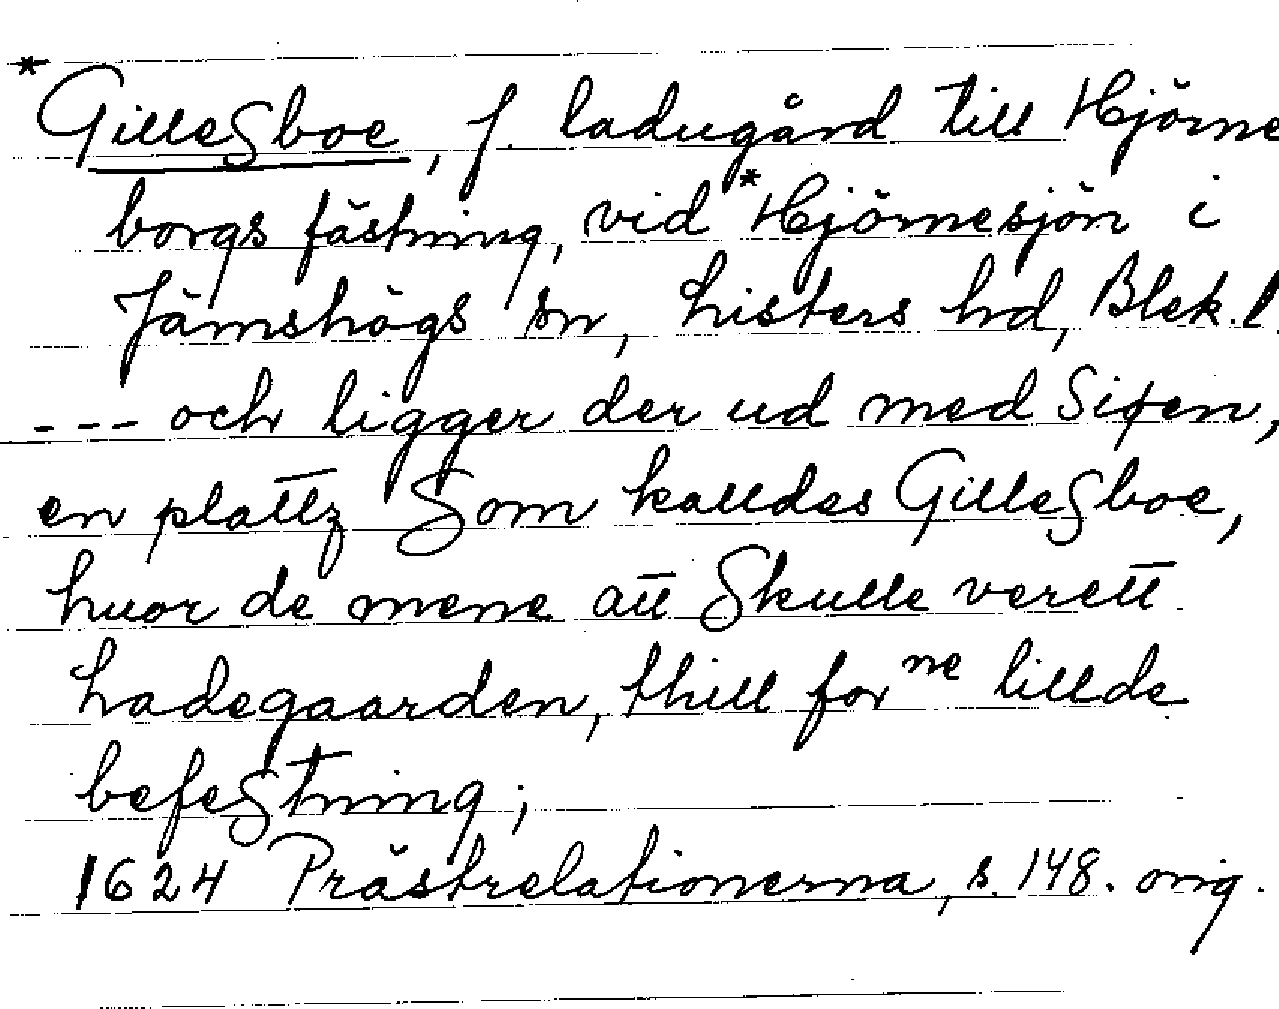 *Gillesboe, f. ladugård till Hjörne
borgs fästning, vid *Hjörnesjön i
Jämshögs sn, Listers hd, Blek. l.
--- och ligger der ud med Siøen,
en plattz Som kalldes Gillesboe,
huor de mene att Skulle verett
Ladegaarden, thill forne lillde
befestning;
1624 Prästrelationerna, s. 148. orig.